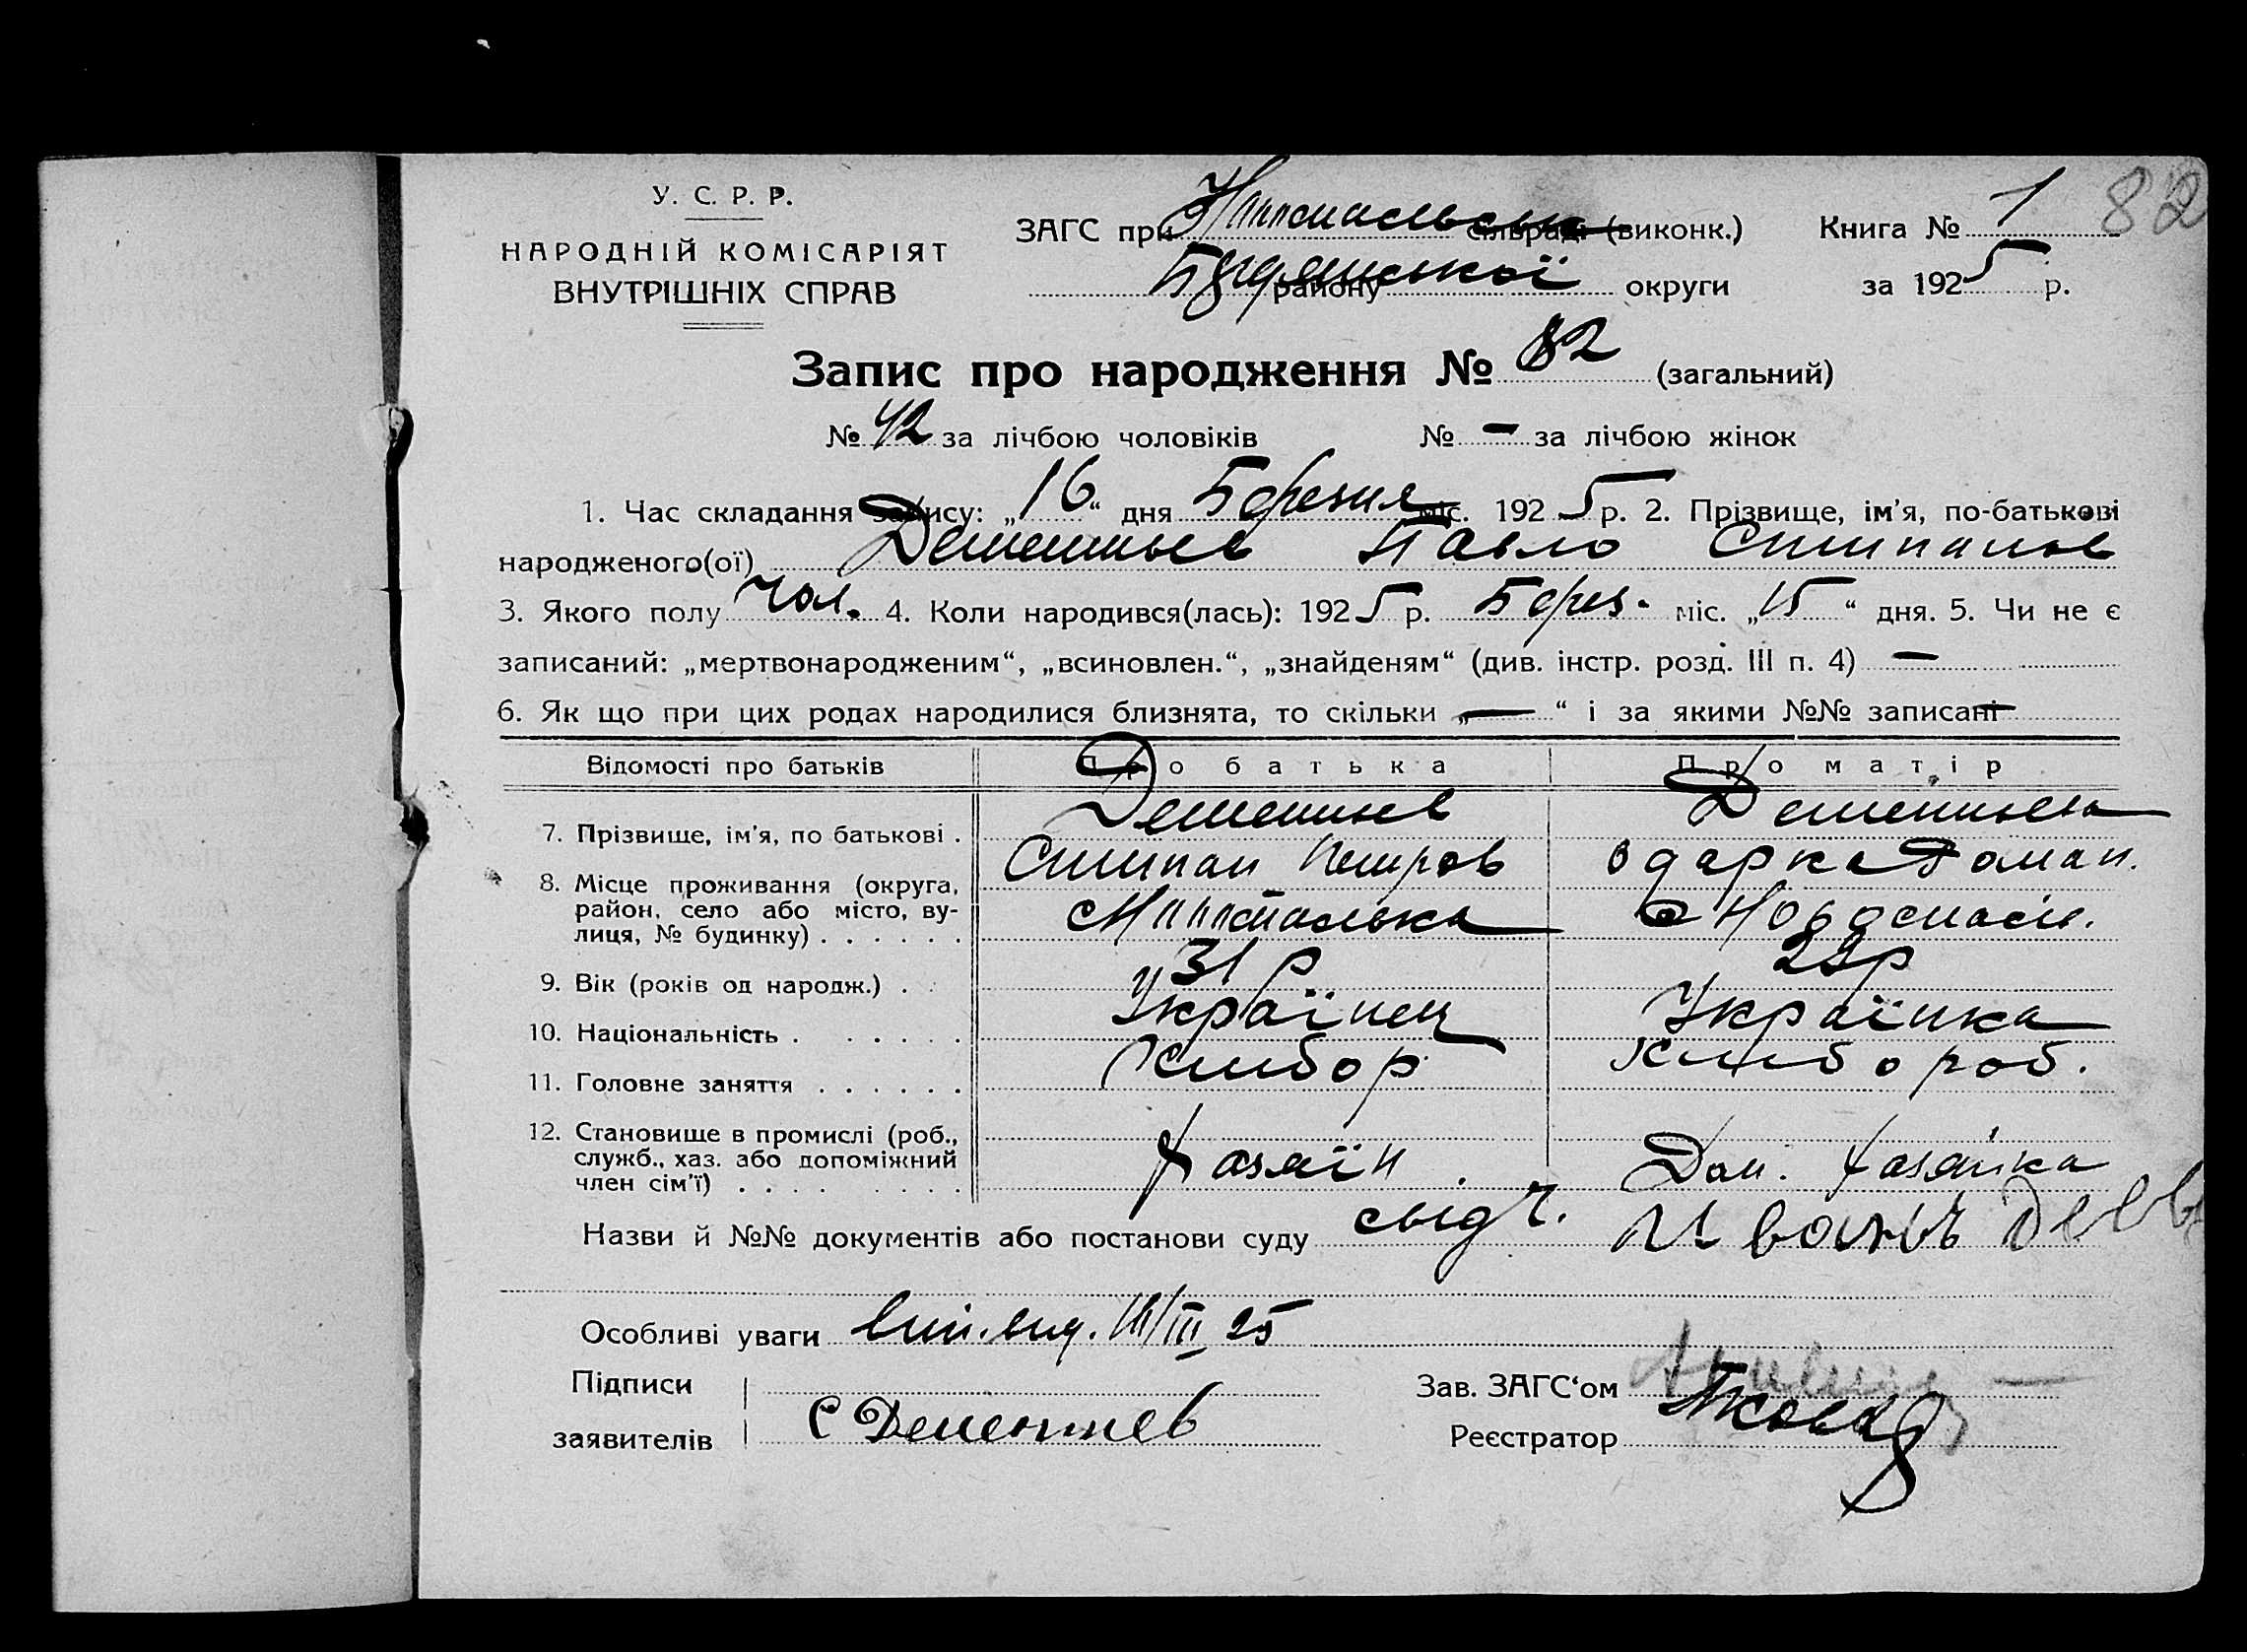 У. С. Р. Р.
НАРОДНІЙ КОМІСАРІЯТ
ВНУТРІШНІХ СПРАВ
ЗАГС при сільраді (виконк.) Книга № 1 82
району округи за 1925 р.
Запис про народження № 82 (загальний)
№ 42 за лічбою чоловіків № — за лічбою жінок
1. Час складання запису: „16“ дня Березня міс. 1925 р. 2. Прізвище, ім'я, по-батькові
народженого(ої) Дементьев Павло Степанов
3. Якого полу чол. 4. Коли народився(лась): 1925 р. Берез. міс. „15“ дня. 5. Чи не є
записаний: „мертвонародженим“, „всиновлен.“, „знайденям“ (див. інстр. розд. III п. 4) —
6. Як що при цих родах народилися близнята, то скільки „—“ і за якими №№ записані —
Відомості про батьків Про батька Про матір
7. Прізвище, ім'я, по батькові . Дементьев Дементьева
Степан Петров Одарка Роман.
8. Місце проживання (округа,
район, село або місто, ву-
лиця, № будинку) . . . . . .
9. Вік (років од народж.) . . 31 р 29р
10. Національність . . . . . . Українец Українка
11. Головне заняття . . . . . . Хлібор Хлібороб.
12. Становище в промислі (роб.,
служб., хаз. або допоміжний
член сім'ї) . . . . . . . . Хазяїн. Дом. Хазяйка
Назви й №№ документів або постанови суду
Особливі уваги вип. вид. 16/III 25
Підписи Зав. ЗАГС'ом
заявителів С Дементьев Реєстратор